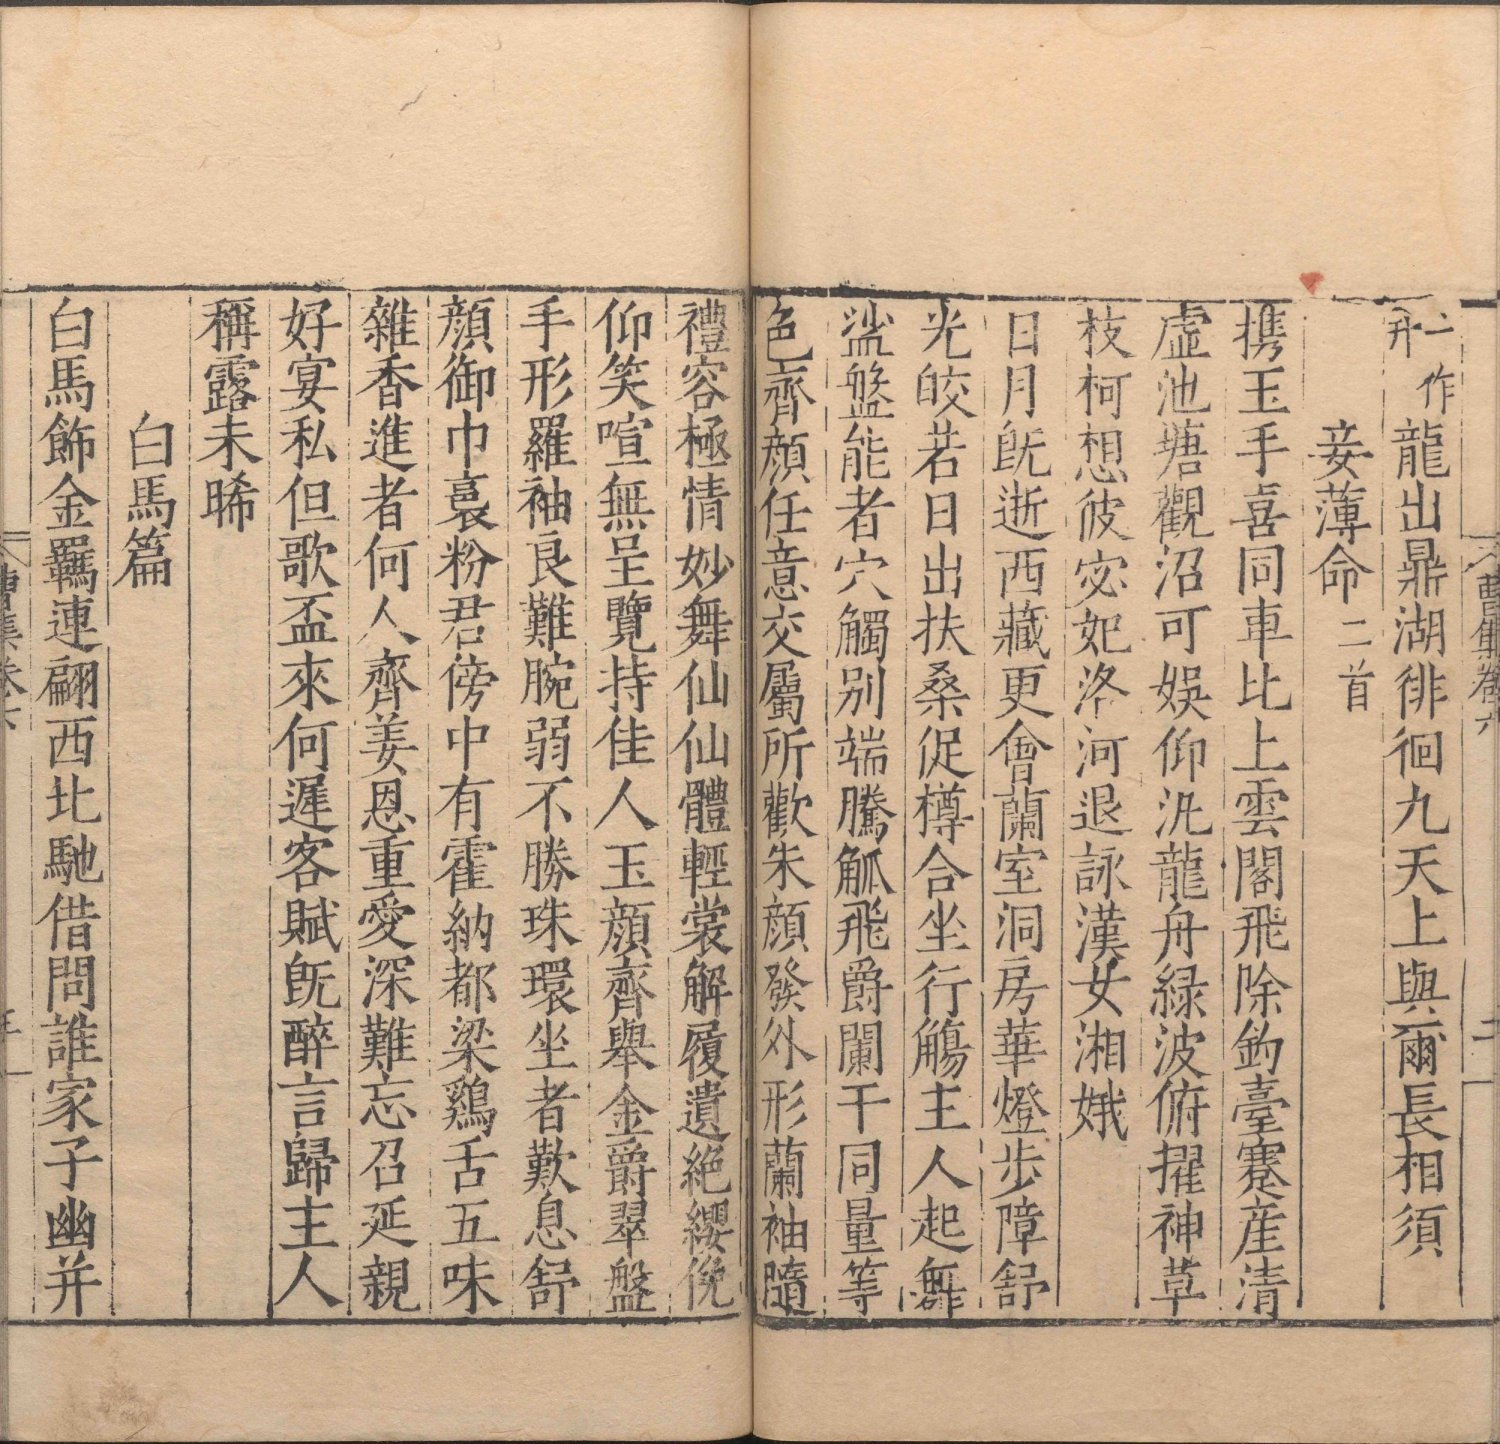 曹集卷六 二
一作升龍出鼎湖徘徊九天上與爾長相須
妾薄命二首
携玉手喜同車比上雲閣飛除釣臺蹇産清
虛池塘觀沼可娛仰汎龍舟緑波俯擢神草
枝柯想彼宓妃洛河退詠漢女湘娥
日月旣逝西藏更會蘭室洞房華燈步障舒
光皎若日出扶桑促樽合坐行觴主人起舞
娑盤能者穴觸别端騰觚飛爵闌干同量等
色齊顔任意交屬所歡朱顔發外形蘭袖隨
禮容極情妙舞仙仙體輕裳解履遺絶纓俛
仰笑喧無呈覽持佳人玉顔齊舉金爵翠盤
手形羅袖良難腕弱不勝珠環坐者歎息舒
顔御巾裛粉君傍中有霍納都梁鷄舌五味
雜香進者何人齊姜恩重愛深難忘召延親
好宴私但歌盃來何遲客賦旣醉言歸主人
稱露未晞
白馬篇
白馬飾金羈連翩西北馳借問誰家子幽并
曹集卷六